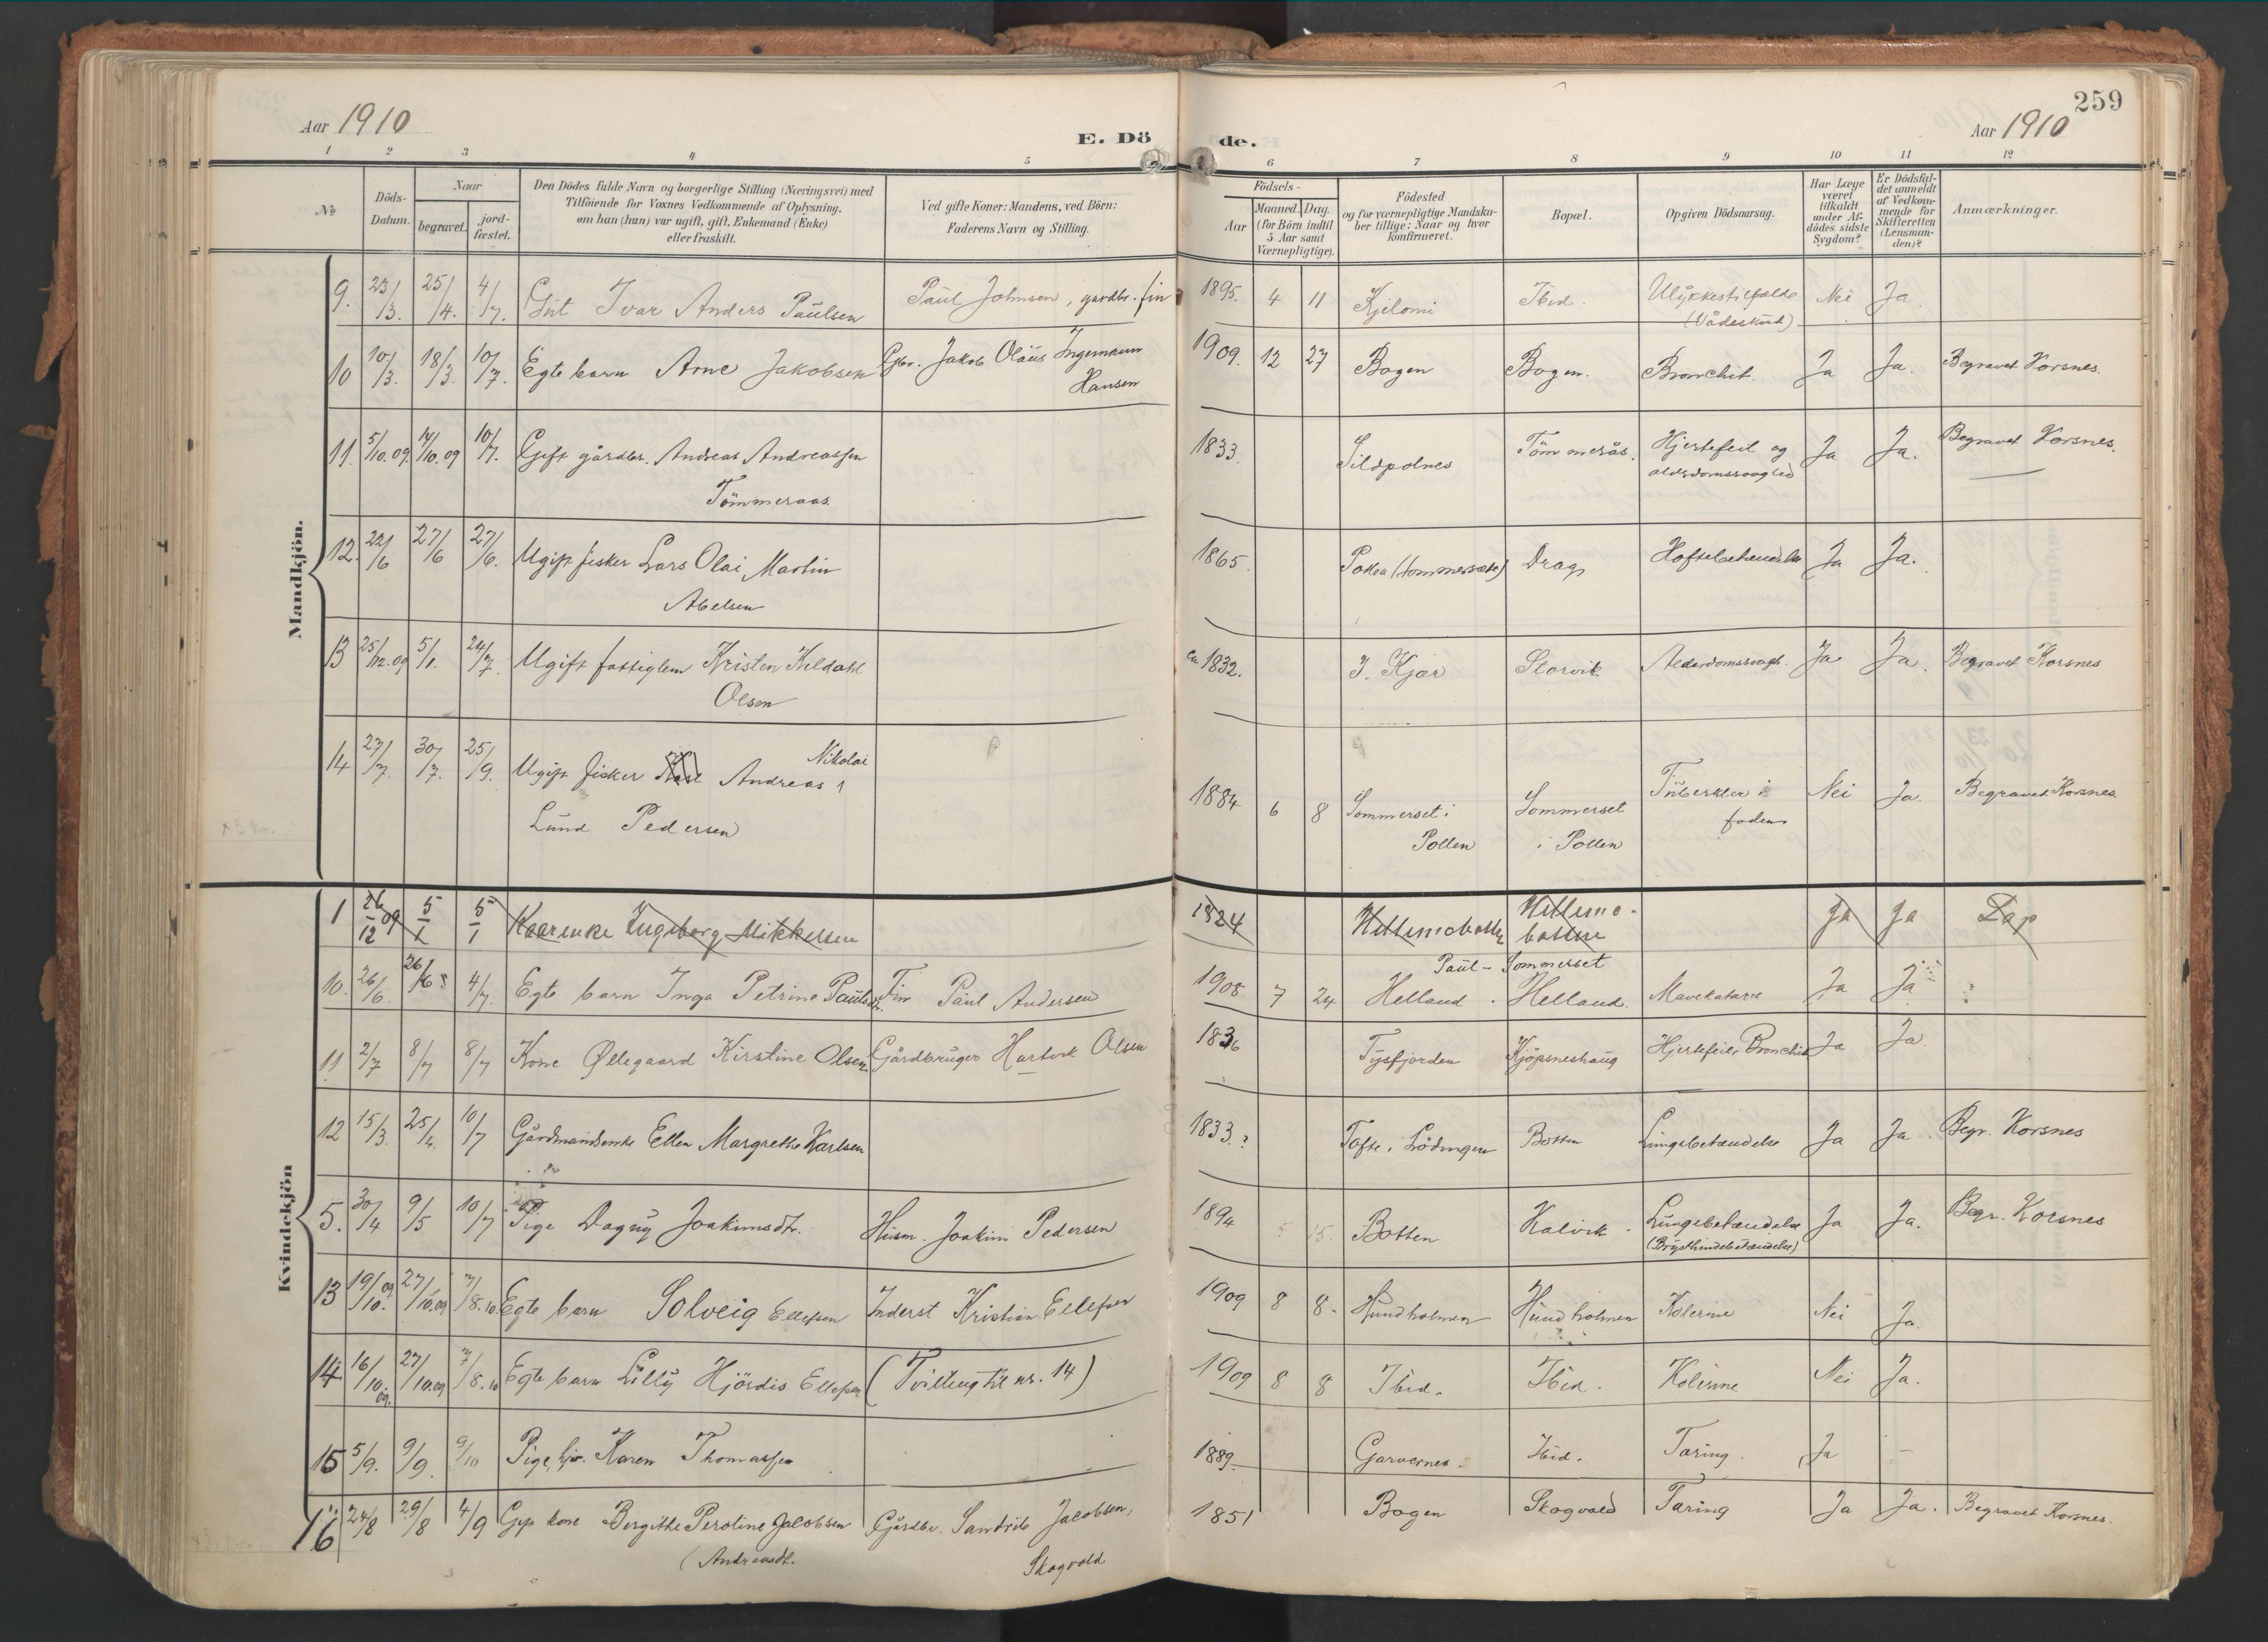 259
Aar 1910
E. Dö
de.
Aar 1910
1 2 3 4 5 6 7 8 9 10 11 12
№
Döds-
Datum.
Naar
begravet.
jord-
fæstet.
Den Dödes fulde Navn og borgerlige Stilling (Næringsvei) med
Tilföiende for Voxnes Vedkommende af Oplysning,
om han (hun) var ugift, gift, Enkemand (Enke)
eller fraskilt.
Ved gifte Koner: Mandens, ved Börn:
Faderens Navn og Stilling.
Födsels-
Aar
Maaned.
Dag.
(for Börn indtil
5 Aar samt
Værnepligtige).
Födested
og for værnepligtige Mandska-
ber tillige: Naar og hvor
konfirmeret.
Bopæl.
Opgiven Dödsaarsag.
Har Læge
været
tilkaldt
under Af-
dödes sidste
Sygdom?
Er Dödsfal-
det anmeldt
af Vedkom-
mende for
Skifteretten
(Lensman-
den)?
Anmærkninger.
Mandkjön.
9. 23/3. 25/4. 4/7. Gut Ivar Anders Paulsen Paul Johnsen, gårdbr. fin 1895. 4 11 Kjelomi Ibid. Ulykkestilfælde Nei Ja.
(Vådeskud)
10 10/3. 18/3. 10/7. Egte barn Arne Jakobsen Gbr. Jakob Olaus Ingemann 1909. 12 27 Bogen Bogen. Bronchit. Ja Ja. Begravet Korsnes.
Hansen
11. 5/10.09. 14/10.09 10/7. Gift gårdbr. Andreas Andreassen 1833. Sildpolnes Tömmerås. Hjertefeil og Ja Ja. Begravet Korsnes.
Tömmeraas. alderdomssvaghed
12. 22/6 27/6 27/6. Ugift fisker Lars Olai Martin 1865. (Sommersæt) Drag Hoftebetændelse Ja Ja.
Abelsen
13 25/12.09 5/1. 24/7. Ugift fattiglem Kristen Kildahl ca 1832. I. Kjær Storvik Alderdomssvagh. Ja Ja. Begravet Korsnes
Olsen
14 27/7. 30/7. 25/9. Ugift fisker Andreas Nikolai 1884 6 8 Sommerset i Sommerset Tuberkler i Nei Ja. Begravet Korsnes.
Lund Pedersen Pollen i Pollen foden
Kvindekjön
1 26/12 09 5/1 5/1 Kaarenke Ingeborg Mikkelsen 1824 Hellemobotten Hellemo-
botten Ja Ja Lap
Paul - Sommerset
10. 26/6. 26/6 4/7. Egte barn Inga Petrine Paulsdr. Fin Paul Andersen 1908. 7 24 Helland. Helland. Mavekatarr Ja Ja
11 2/7 8/7 8/7 Kone Øllegaard Kirstine Olsen. Gårdbruger Hartvik Olsen 1836 Tysfjorden Kjöpsneshaug Hjertefeil, Bronchit Ja Ja.
12 15/3. 25/4. 10/7 Gårdmandsenke Ellen Margrethe Karlsen 1833.? Tofte i Lödingen Botten Lungebetændelse Ja Ja Begr. Korsnes
5. 30/4 9/5 10/7 Pige Dagny Joakimsdtr. Husm. Joakim Pedersen 1894 5 15. Botten Kalvik. Lungebetændelse Ja Ja. Begr. Korsnes
(Brysthindebetændelse)
13 19/10. 09. 27/10.09 7/8.10 Egte barn Solveig Ellefsen Inderst Kristian Ellefsen 1909 8 8. Hundholmen Hundholmen Kolerine Nei Ja.
14 16/10. 09. 27/10.09 7/8.10 Egte barn Lilly Hjördis Ellefsen (Tvilling til nr. 14) 1909 8 8 Ibid. Ibid. Kolerine Nei Ja.
15 5/9. 9/9. 9/10 Pige, Karen Thomassen 1889. Garvernes. Ibid. Taring. Ja -
16 24/8 29/8 4/9 Gift kone Bergithe Peroline Jacobsen Gårdbr. Sandrik Jacobsen, 1851 Bogen Skogvold Taring Ja Ja. Begravet Korsnes.
(Andreasdt. Skogvold